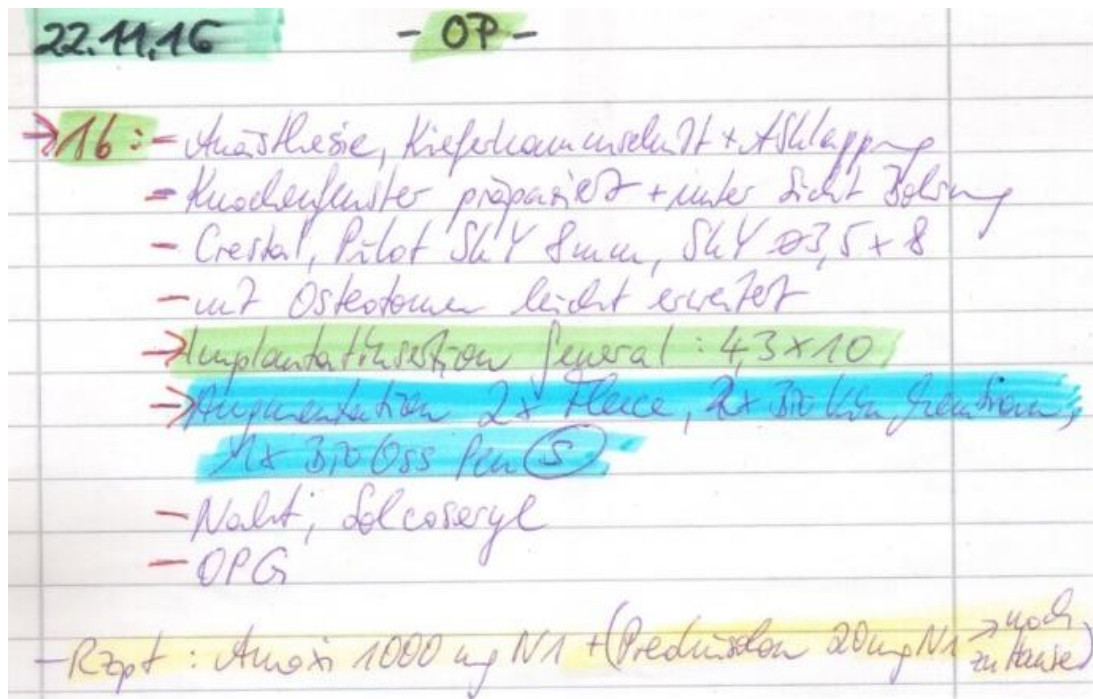 22.11.16 - OP -
→16: - Anästhesie, Kieferkammschnitt + Aklappung
- Knochenfenster präpariert + unter Sicht Bohrung
- Crestal, Pilot SKY 8mm, SKY ø3,5 x 8
- mit Osteotomen leicht erweitert
→Implantatinsertion : 4,3x10
→Augmentation 2x Fleece, 2x
1x BioOss Pen (S)
- Naht, Solcoseryl
- OPG
- Rzpt : Amoxi 1000 mg N1 + (Prednisolon 20mg N1 → noch
zu Hause)